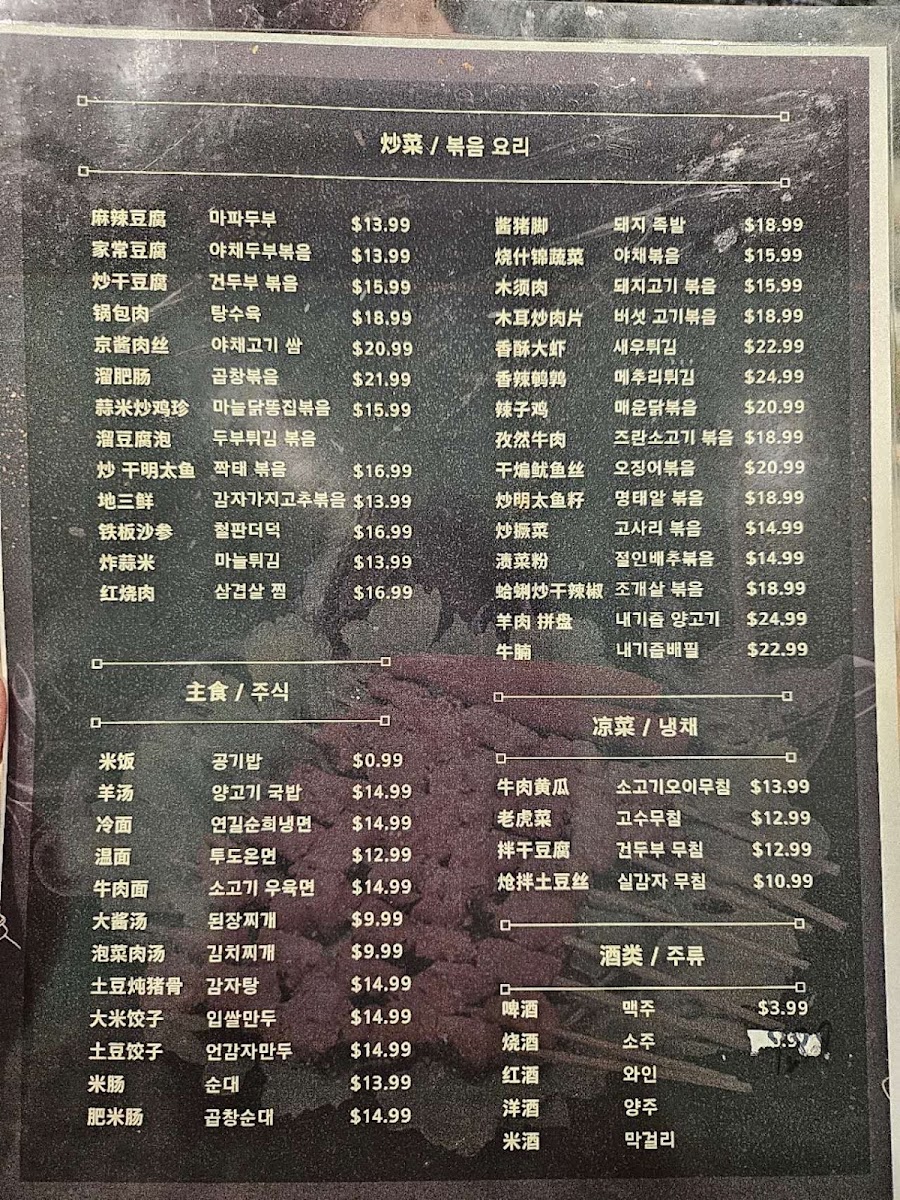 炒菜 / 볶음 요리
麻辣豆腐 마파두부 $13.99
家常豆腐 야채두부볶음 $13.99
炒干豆腐 건두부 볶음 $15.99
锅包肉 탕수육 $18.99
京酱肉丝 야채고기 쌈 $20.99
溜肥肠 곱창볶음 $21.99
蒜米炒鸡珍 마늘닭똥집볶음 $15.99
溜豆腐泡 두부튀김 볶음
炒 干明太鱼 짝태 볶음 $16.99
地三鲜 감자가지고추볶음 $13.99
铁板沙参 철판더덕 $16.99
炸蒜米 마늘튀김 $13.99
红烧肉 삼겹살 찜 $16.99
酱猪脚 돼지 족발 $18.99
烧什锦蔬菜 야채볶음 $15.99
木须肉 돼지고기 볶음 $15.99
木耳炒肉片 버섯 고기볶음 $18.99
香酥大虾 새우튀김 $22.99
香辣鹌鹑 메추리튀김 $24.99
辣子鸡 매운닭볶음 $20.99
孜然牛肉 즈란소고기 볶음 $18.99
干煸鱿鱼丝 오징어볶음 $20.99
炒明太鱼籽 명태알 볶음 $18.99
炒撅菜 고사리 볶음 $14.99
渍菜粉 절인배추볶음 $14.99
蛤蜊炒干辣椒 조개살 볶음 $18.99
羊肉 拼盘 내기즙 양고기 $24.99
牛腩 내기즙배필 $22.99
主食 / 주식
米饭 공기밥 $0.99
羊汤 양고기 국밥 $14.99
冷面 연길순희냉면 $14.99
温面 투도온면 $12.99
牛肉面 소고기 우육면 $14.99
大酱汤 된장찌개 $9.99
泡菜肉汤 김치찌개 $9.99
土豆炖猪骨 감자탕 $14.99
大米饺子 입쌀만두 $14.99
土豆饺子 언감자만두 $14.99
米肠 순대 $13.99
肥米肠 곱창순대 $14.99
凉菜 / 냉채
牛肉黄瓜 소고기오이무침 $13.99
老虎菜 고수무침 $12.99
拌干豆腐 건두부 무침 $12.99
炝拌土豆丝 실감자 무침 $10.99
酒类 / 주류
啤酒 맥주 $3.99
烧酒 소주
红酒 와인
洋酒 양주
米酒 막걸리